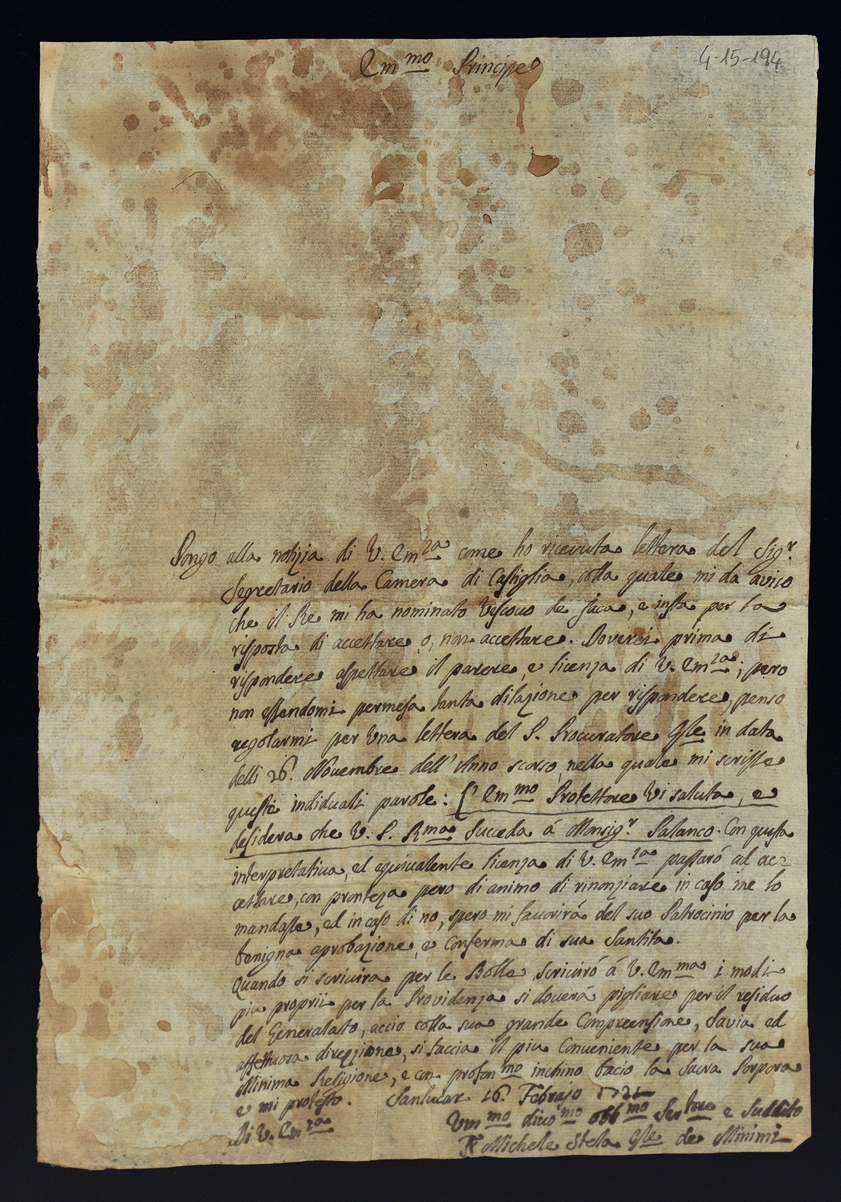 Em.mo Principe
4-15-194
Pongo alla notizia di V. Em.za come ho ricevuta lettera del Sig.r
Segretario della Camera di Castiglia, colla quale mi da aviso
che il Re mi ha nominato Vescovo de Jaca, e insta per la
risposta di accettare, o, non accettare. Doverei prima di
rispondere aspettare il parere, e licenza di V. Em.za; pero
non essendomi permesa tanta dilazione per rispondere, penso
regolarmi per una lettera del P. Procuratore Gle in data
delli 26. Novembre dell' Anno scorso, nella quale mi scrisse
queste individuali parole: L'Em.mo Protettore Vi saluta, e
desidera che V. P. R.ma succeda á Monsig.r Palanco. Con questa
interpretativa, ed equivalente licenza di V. Em.za passaró ad ac=
cettare, con pronteza pero di animo di rinonziare in caso me lo
mandasse, ed in caso di no, spero mi favorirá del suo Patrocinio per la
benigna aprobazione, e Conferma di sua Santita.
Quando si scrivira per le Bolle scriviró á V. Em.ma i modi
piu proprii per la Providenza si doverá pigliare per il residuo
del Generalato, accio colla sua grande Comprensione, Savia ed
affettuosa direzzione, si faccia il piu Conveniente per la sua
Minima Religione, e con profon.mo inchino bacio la Sacra Porpora
e mi protesto. Sanlucar 16. Febrajo 1721
Di V. Em.za
Um.mo divo.mo obb.mo Ser.tore e Suddito
Fr Michele Stela Gle de Minimi